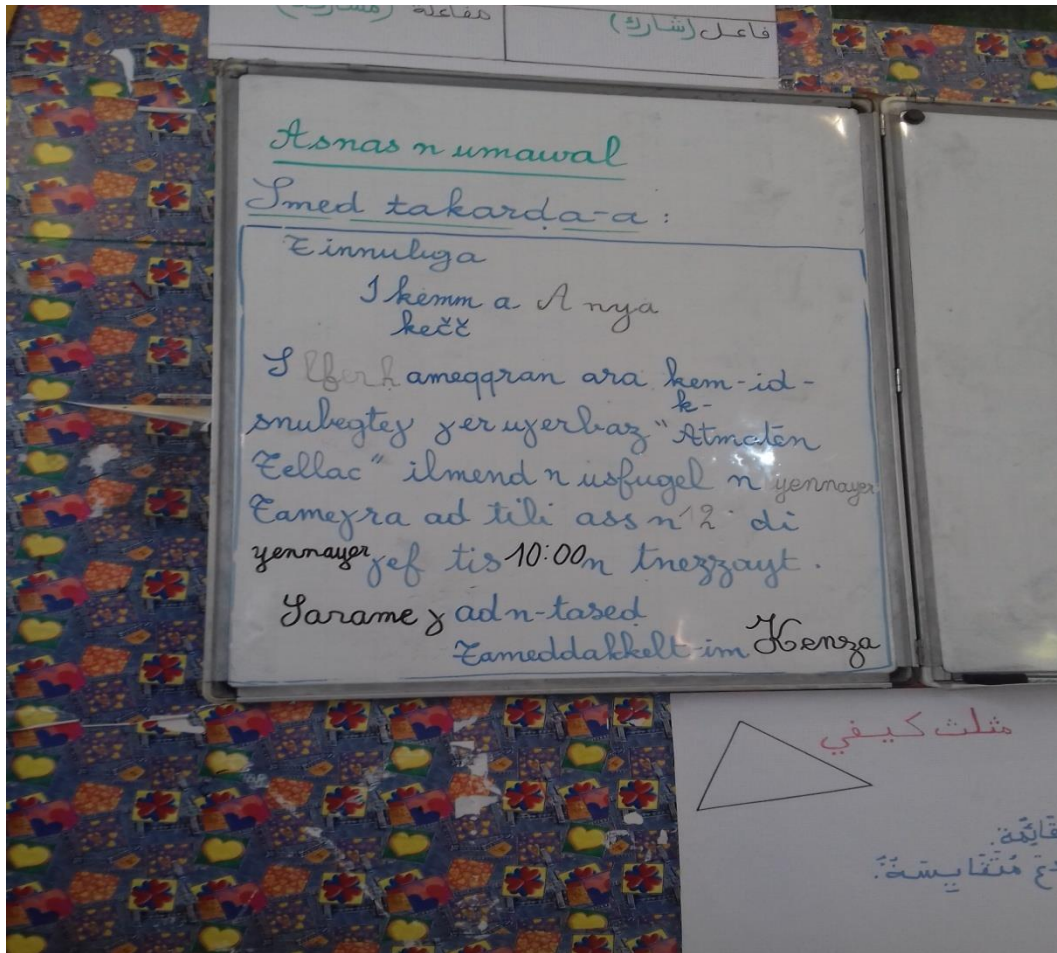 مفاعلة (مشاركة)
فاعل (شارك)
Asnas n umawal
Smed takarḍa-a :
Tinnubga
I kemm a Anya
kečč
S lferḥ ameqqran ara kem-id-
k-
snubegteɣ ɣer uɣerbaz "Atmaten
Tellac" ilmend n usfugel n yennayer
Tameɣra ad tili ass n 12 di
yennayer ɣef tis 10:00 n tnezzayt.
Sarameɣ ad n-tased
Tameddakkelt-im Kenza
مثلث كيفي
قَائِمَة.
مُتَقَايِسَةٌ.